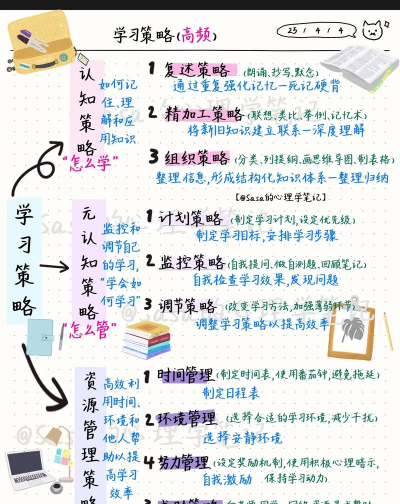 学习策略(高频)
23 / 4 / 4
学习策略
认知策略
如何记住、理解和应用知识
"怎么学"
1 复述策略 (朗诵、抄写、默念)
通过重复强化记忆—死记硬背
2 精加工策略 (联想、类比、举例、记忆术)
将新旧知识建立联系—深度理解
3 组织策略 (分类、列提纲、画思维导图、制表格)
整理信息,形成结构化知识体系—整理归纳
【@Sasa的心理学笔记】
元认知策略
监控和调节自己的学习,"学会如何学习"
"怎么管"
1 计划策略 (制定学习计划,设定优先级)
制定学习目标,安排学习步骤
2 监控策略 (自我提问、做自测题、回顾笔记)
自我检查学习效果,发现问题
3 调节策略 (改变学习方法,加强薄弱环节)
调整学习策略以提高效率
资源管理策
高效利用时间、环境和他人帮助以提高学习效率
1 时间管理 (制定时间表,使用番茄钟,避免拖延)
制定日程表
2 环境管理 (选择合适的学习环境,减少干扰)
选择安静环境
4 努力管理 (设定奖励机制,使用积极心理暗示,
自我激励 保持学习动力)